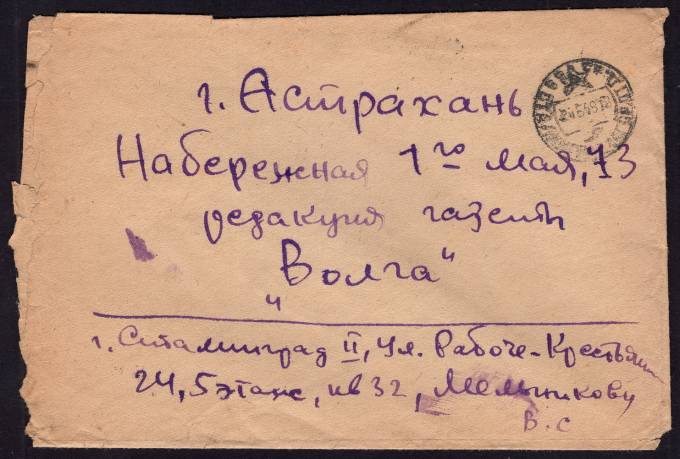 г. Астрахань
Набережная 1го мая, 73
редакция газеты
„Волга“
г. Сталинград II, ул. Рабоче-Крестьян
24, 5 этаж, кв 32, Мельникову
В. С